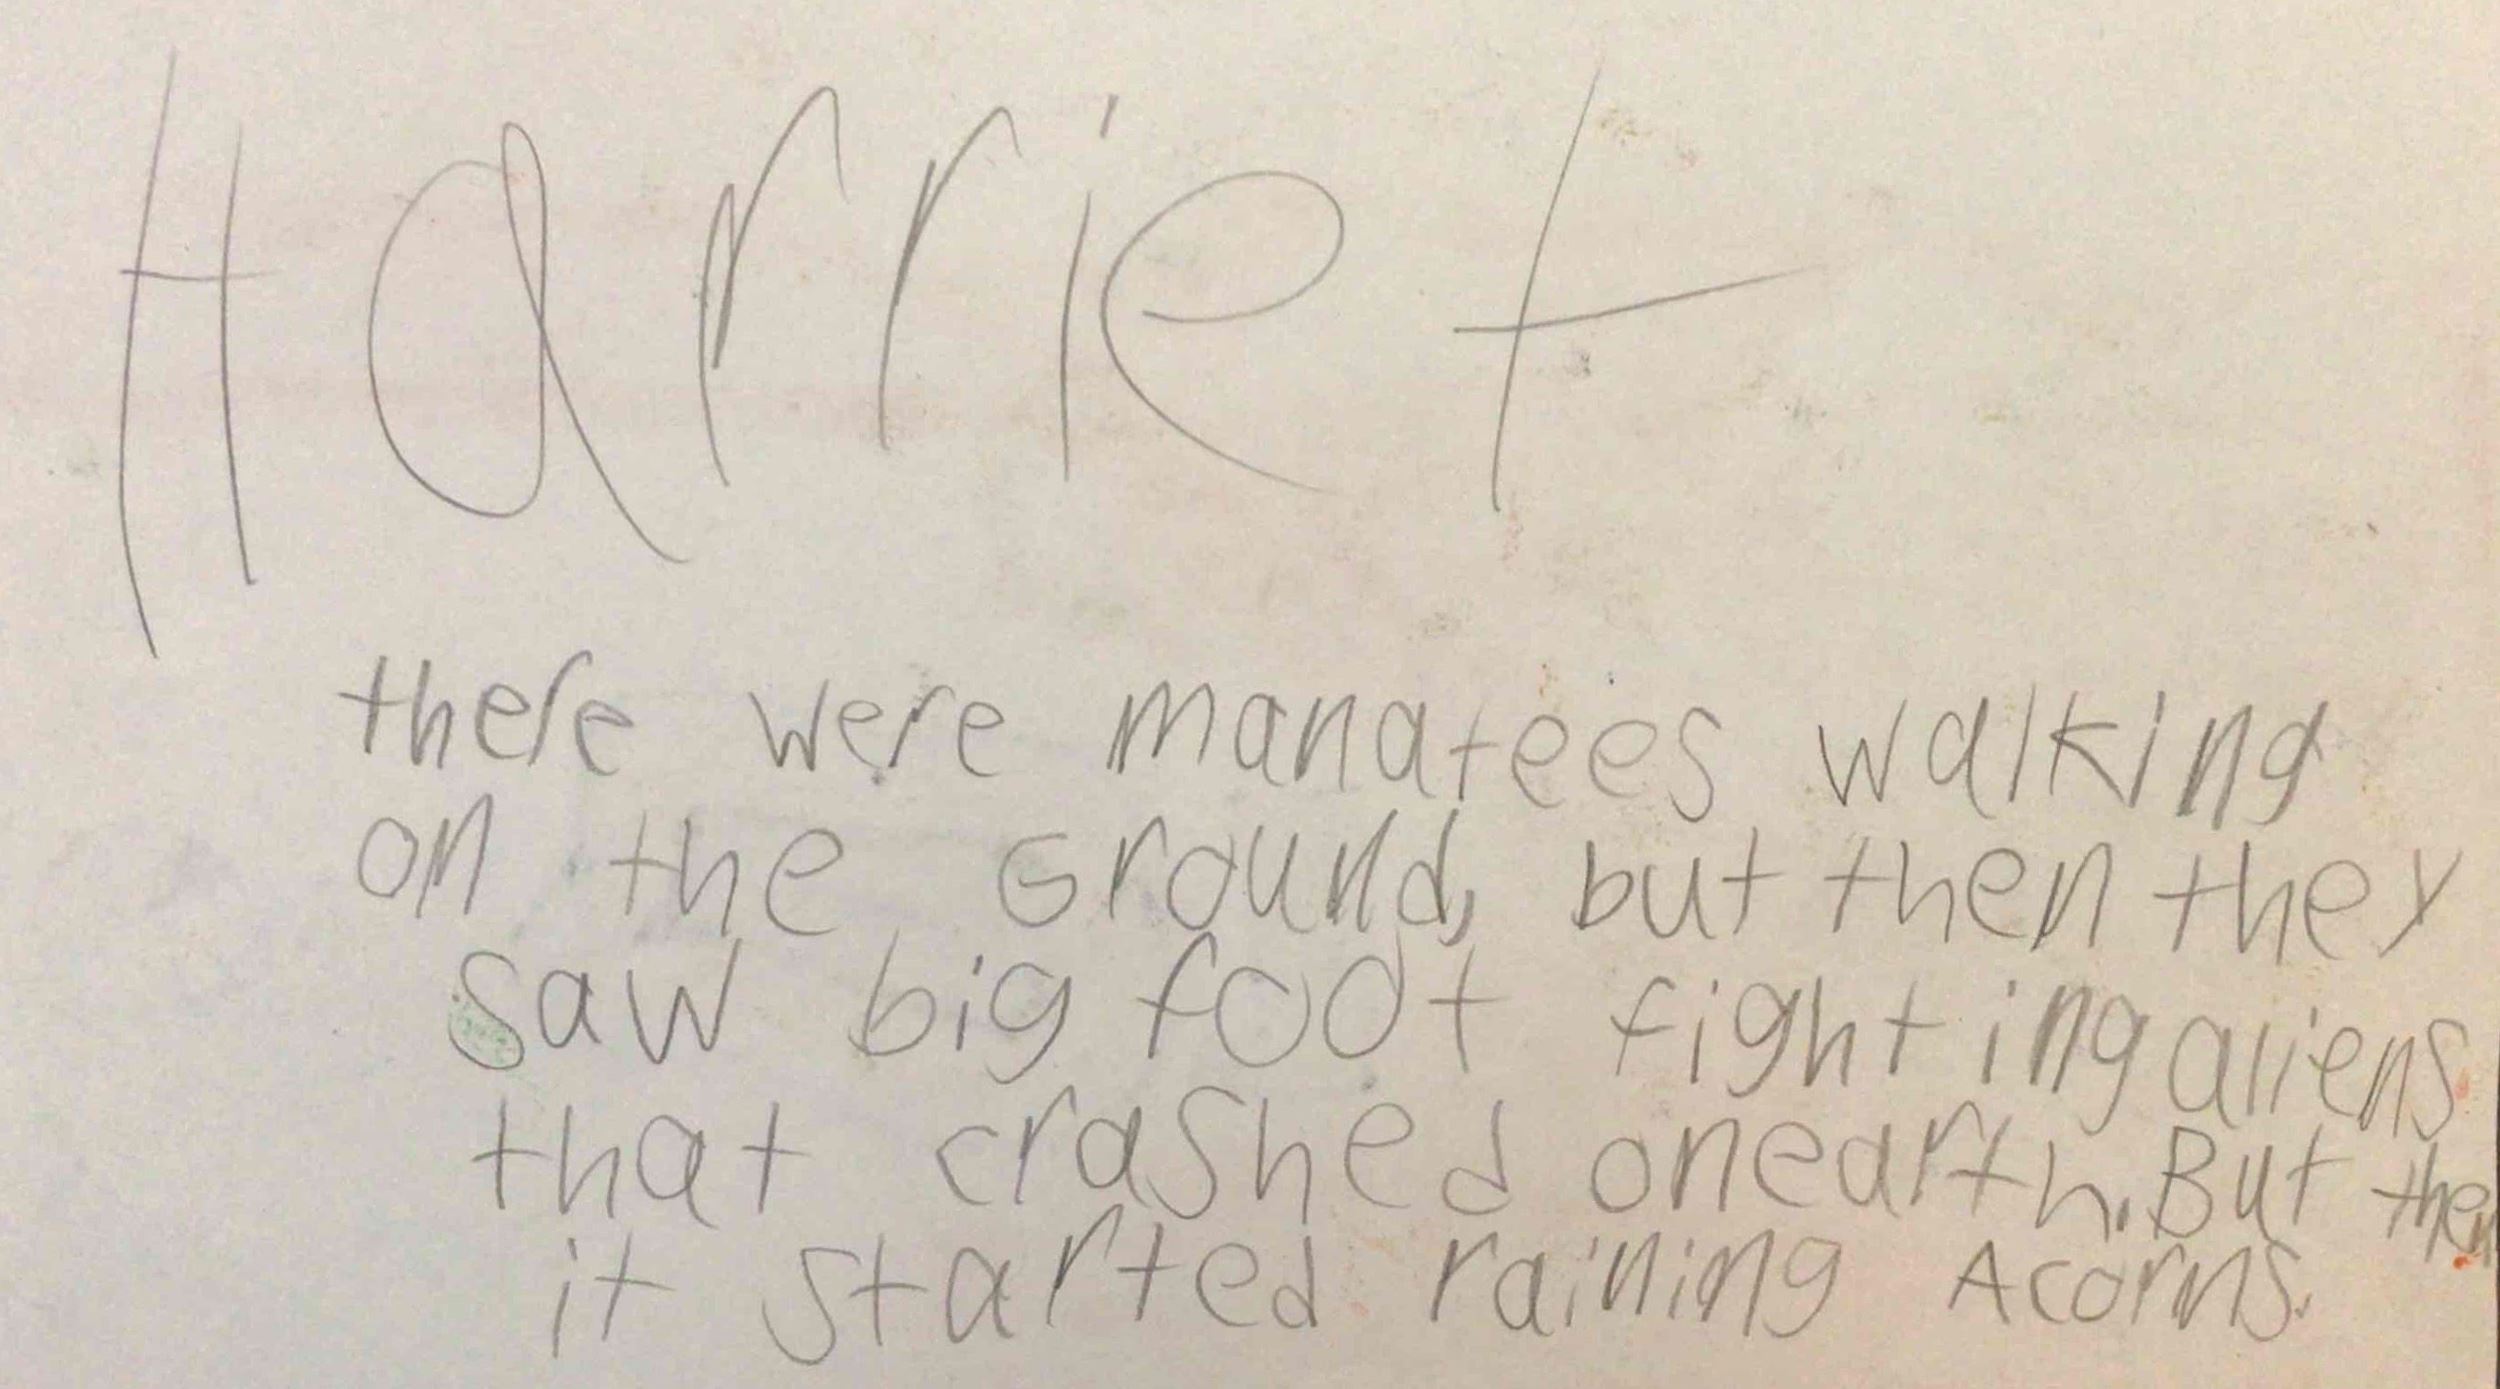 Harriet
there were manatees walking
on the Ground, but then they
saw big foot fighting aliens
that crashed on earth. But then
it started raining Acorns.